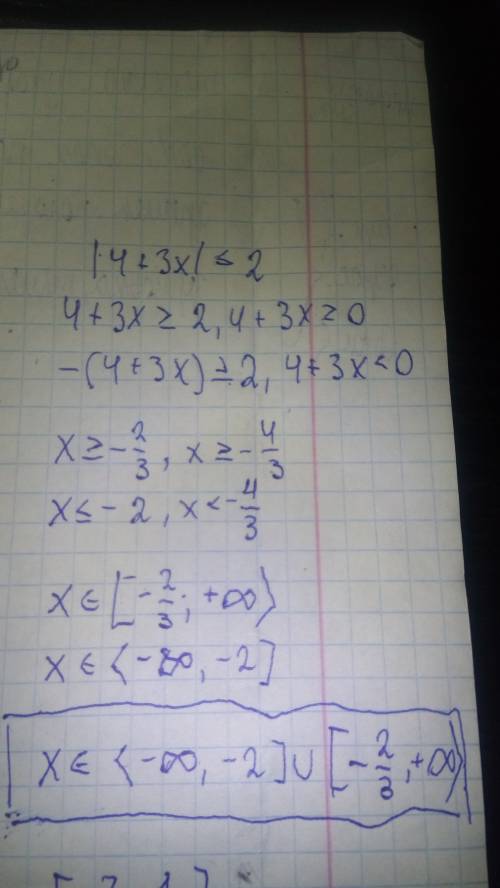 |4+3x| ≤ 2
4+3x ≥ 2, 4+3x ≥ 0
-(4+3x) ≥ 2, 4+3x < 0
x ≥ -2/3, x ≥ -4/3
x ≤ -2, x < -4/3
x ∈ [-2/3; +∞⟩
x ∈ ⟨-∞, -2]
x ∈ ⟨-∞, -2] ∪ [-2/3, +∞⟩